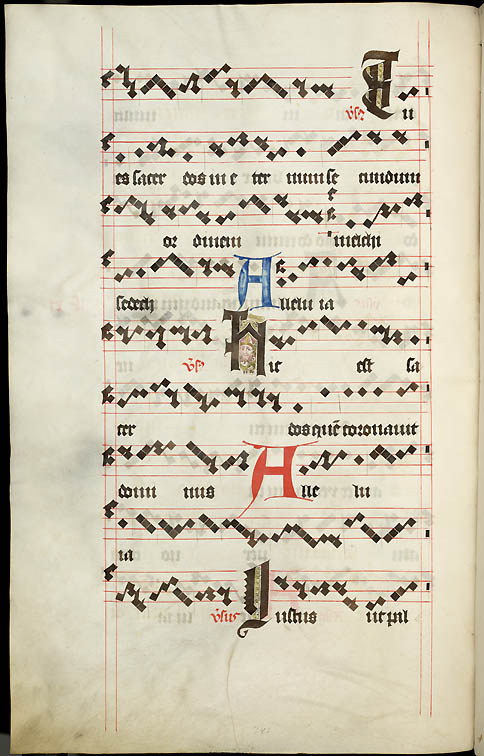 Vs Tu
es sacer dos in e ter num se cundum
or dinem melchi
sedech Allelu ia
Vs Hic est sa
cer dos quē coronavit
domi nus Alle lu
ia
Vsus Justus ut pal